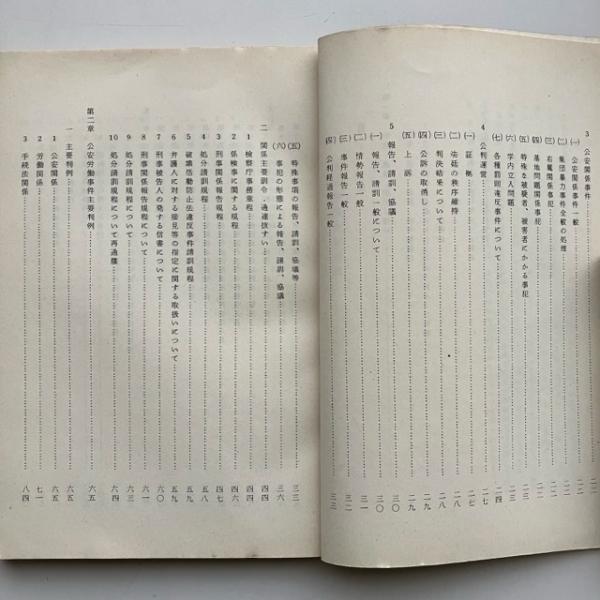 3 公安関係事件
(一) 公安関係事件一般……二二
(二) 集団暴力事件全般の処理……二二
(三) 右翼関係事犯……二二
(四) 基地問題関係事犯
(五) 特殊な被疑者、被害者にかかる事犯
(六) 学内立入問題……二三
(七) 各種罰則違反事件について……二四
4 公判運営……二七
(一) 証拠……二七
(二) 法廷の秩序維持……二八
(三) 判決結果について……二八
(四) 公訴の取消し……二九
(五) 上訴……二九
5 報告、請訓、協議……三〇
(一) 報告、請訓一般について……三〇
(二) 情勢報告一般……三一
(三) 事件報告一般……三二
(四) 公判経過報告一般……三三
(五) 特殊事項の報告、請訓、協議等……三三
(六) 事犯の形態による報告、請訓、協議……三六
二 関係主要訓令・通達抜すい……四四
1 検察庁事務章程……四四
2 係検事に関する規程……四六
3 刑事関係報告規程……四七
4 処分請訓規程……五八
5 破壊活動防止法違反事件請訓規程……五九
6 弁護人に対する接見等の指定に関する取扱いについて……五九
7 刑事被告人の発する信書について……六〇
8 刑事関係報告規程について……六一
9 処分請訓規程について……六三
10 処分請訓規程について再通牒……六四
第二章 公安労働事件主要判例……六五
一 主要判例……六五
1 公安関係……六五
2 労働関係……七一
3 手続法関係……八四